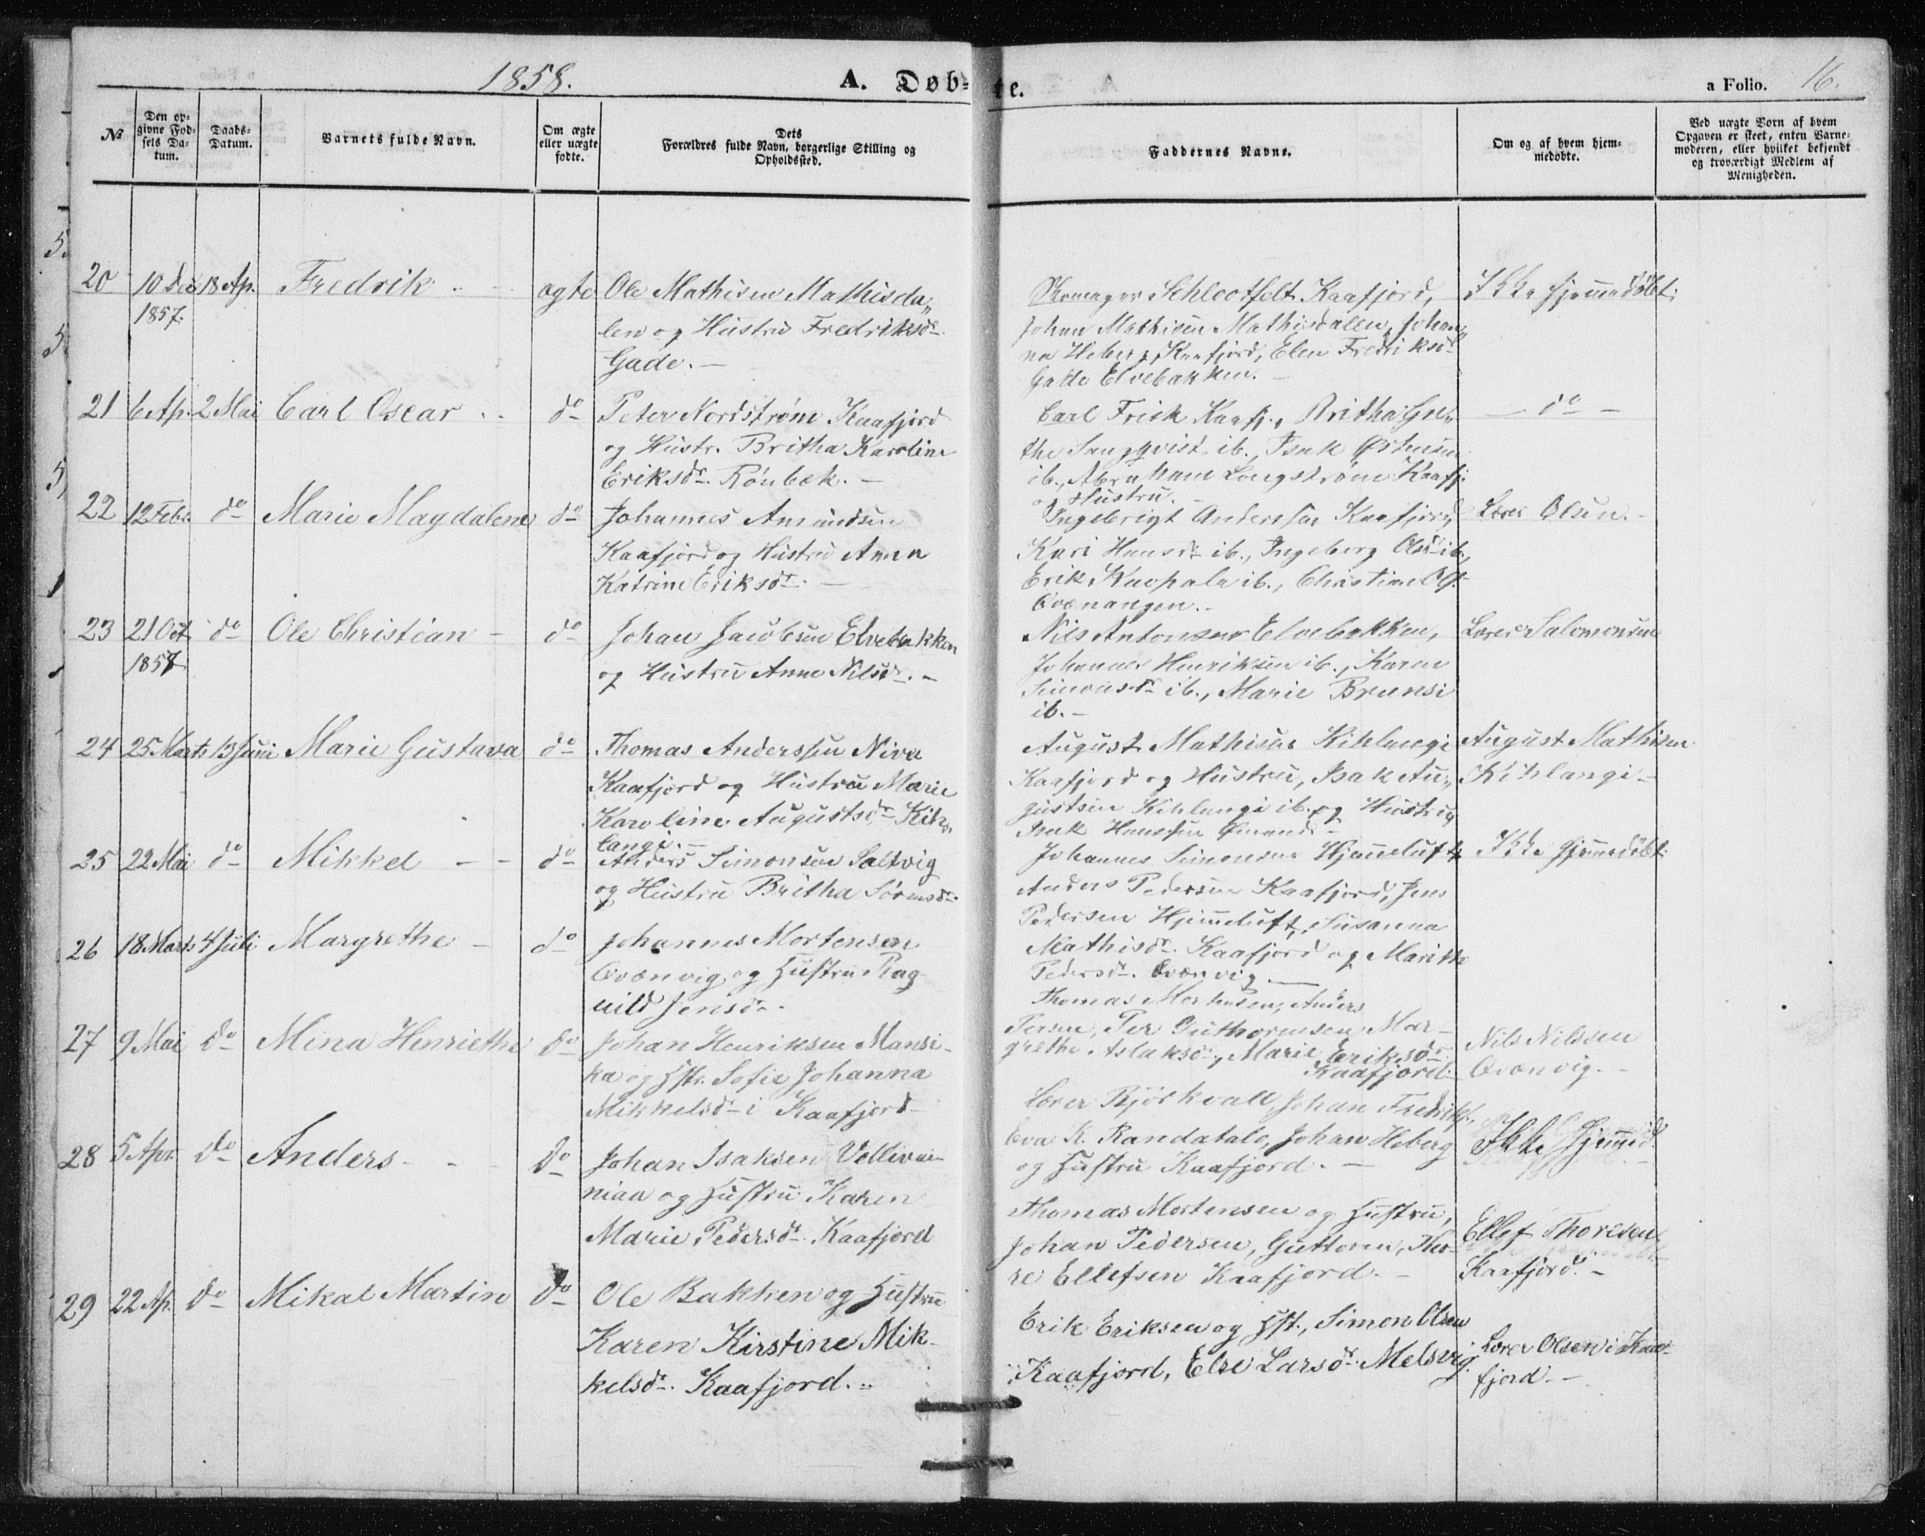 1858. A. Døbte. a Folio. 16.
No
Den opgivne Fødsels Datum.
Daabs-Datum.
Barnets fulde Navn.
Om ægte eller uægte fødte.
Dets Forældres fulde Navn, borgerlige Stilling og Opholdssted.
Faddernes Navne.
Om og af hvem hjemmedøbte.
Ved uægte Børn af hvem Opgaven er skeet, enten Barnemoderen, eller hvilket bekjendt og troværdigt Medlem af Menigheden.
20 10 Dec 1857. 18 Ap. Fredrik ægte
Ole Mathisen Mathisda„
len og Hustru Fredriksdr
Gade. —
Schlootfelt Kaafjord,
Johan Mathisen Mathisdalen, Johan„
na Heberg, Kaafjord, Elen Fredriksdr
Gade Elvebakken. —
Ikke hjemmedöbt.
21 6 Ap. 2 Mai Carl Oscar do
Peter Nordstrøm Kaafjord
og Hustr. Britha Karoline
Eriksdr. Rönbæk. —
Carl Frisk Kaafj., Britha Gre„
the Sangqvist ib., Isak
ib., Abraham Longstrøm Kaafj.
og Hustru. —
— do —
22 12 Febr. do Marie Magdalene do
Johannes Amundsen
Kaafjord og Hustru Anna
Katrine Eriksdr. —
Ingebrigt Anderssen Kaafjord,
Kari Hansdr ib., Ingeborg Olsdr ib.,
Erik ib., Christine
Qvænangen. —
Lærer Olsen. —
23 21 Oct. 1857 do Ole Christian — do
Johan Jacobsen Elvebakken
og Hustru Anne Nilsdr. —
Nils Antonsen Elvebakken,
Johannes Henriksen ib., Karen
Simonsdr ib., Marie Brunsi
ib. —
Lærer Salomonsen
24 25 Marts 13 Juni Marie Gustava do
Thomas Anderssen Niva
Kaafjord og Hustru Marie
Karoline Augustsdr Kih„
langi. —
August Mathisen Kihlangi
Kaafjord og Hustru, Isak Au„
gustsen Kihlangi ib. og Hustru,
Isak Hanssen
August Mathisen
Kihlangi —
25 22 Mai do Mikkel — — do
Anders Simonsen Saltvig
og Hustru Britha Sörensdr.
Johannes Simonsen Hjemmeluft,
Anders Pedersen Kaafjord, Jens
Pedersen Hjemmeluft, Susanna
Mathisdr. Kaafjord og Marithe
Pedersdr. Qvænvig —
Ikke hjemmedöbt.
26 18 Marts 4 Juli Margrethe — do
Johannes Mortensen
Qvænvig og Hustru Rag-
nild Jensdr. —
Thomas Mortensen, Anders
Persen, Per Guthormsen, Mar-
grethe Aslaksdr, Marie Eriksdr
Kaafjord. —
Nils Nilssen
Qvænvig. —
27 9 Mai do Mina Henriethe do
Johan Henriksen Mansi-
ka og Hstr. Sofie Johanna
Mikkelsdr i Kaafjord
Lærer Björkvall Johan Fredriks.,
Eva K. Randatalo, Johan Heberg
og Hustru Kaafjord. —
Ikke hjemmed
28 5 Apr. do Anders — — do
Johan Isaksen Vellivai-
niaa og Hustru Karen
Marie Pedersdr. Kaafjord
Thomas Mortensen og Hustru,
Johan Pedersen, Guttorm, Ker-
re Ellefsen Kaafjord. —
Ellef Thoresen
Kaafjord. —
29 22 Ap. do Mikal Martin do
Ole Bakken og Hustru
Karen Kirstine Mik-
kelsdr. Kaafjord. —
Erik Eriksen og Hst., Simon Olsen
Kaafjord, Else Larsdr. Melsvig.
Lærer Olsen i Kaa-
fjord. —